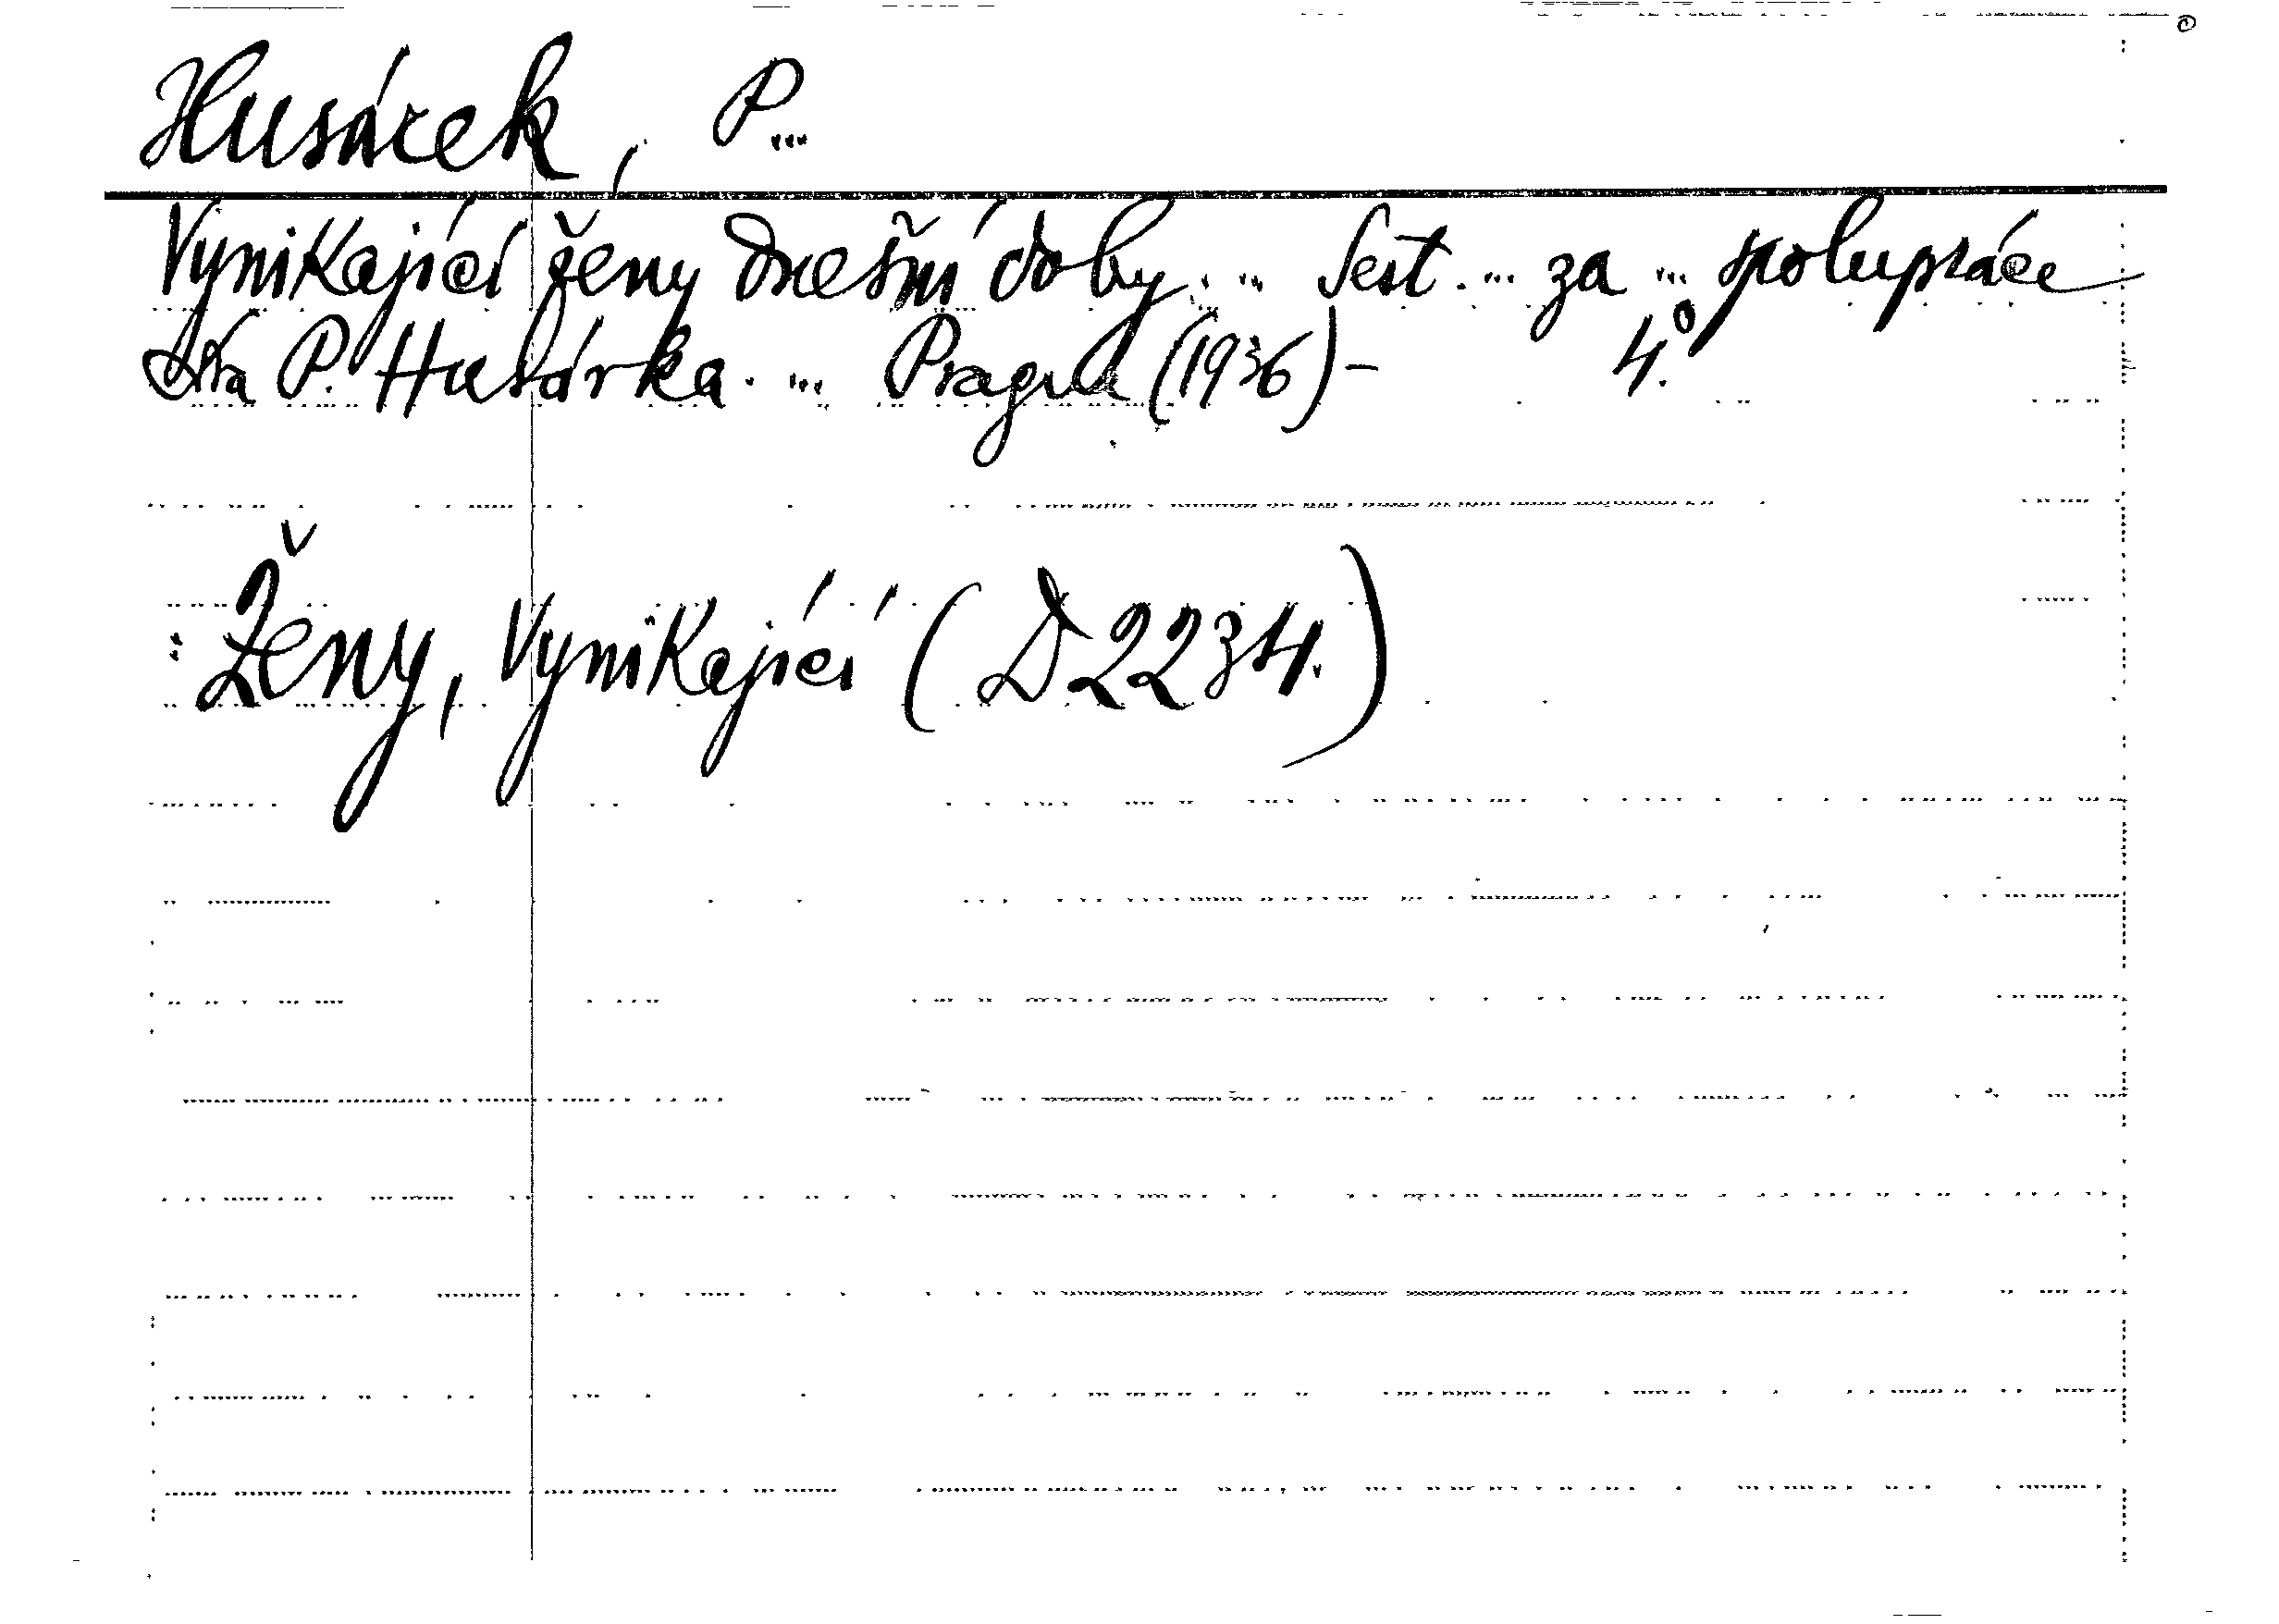 Husárek, P...
Vynikající ženy dnešní doby. ... Sest. ... za ... spolupráce
Dra P. Husárka. ... Pragud (1936)- 4.º
: Ženy, Vynikající (D2234.)